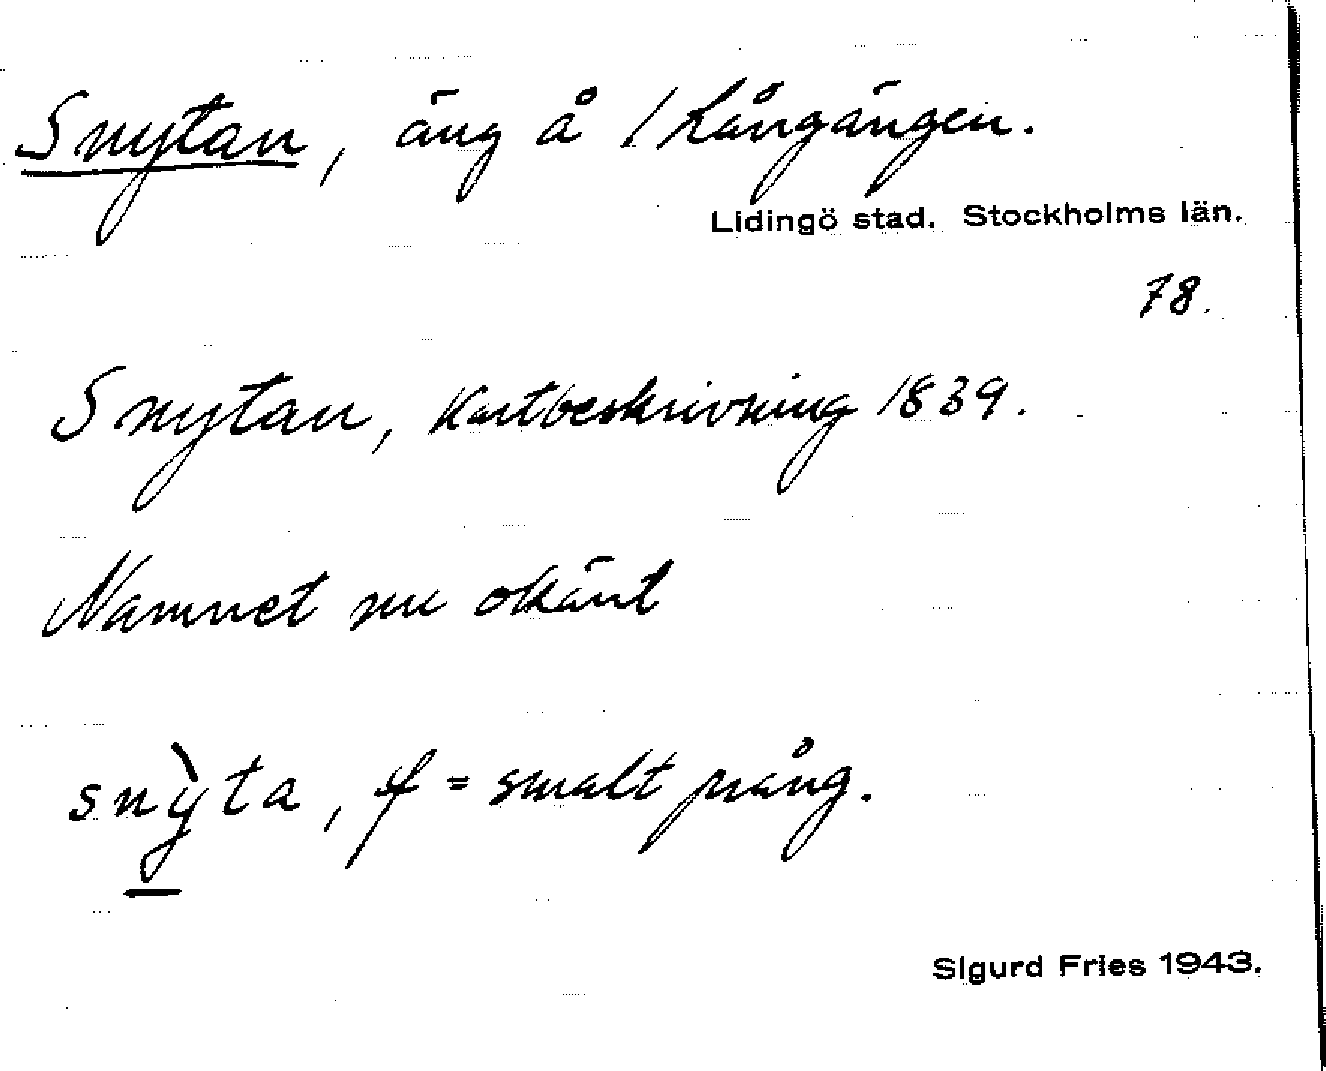 Snytan, äng å / Långängen.
Lidingö stad. Stockholms län.
78.
Snytan, Kartbeskrivning 1839.
Namnet nu okänt
snỳta, f = smalt prång.
Sigurd Fries 1943.